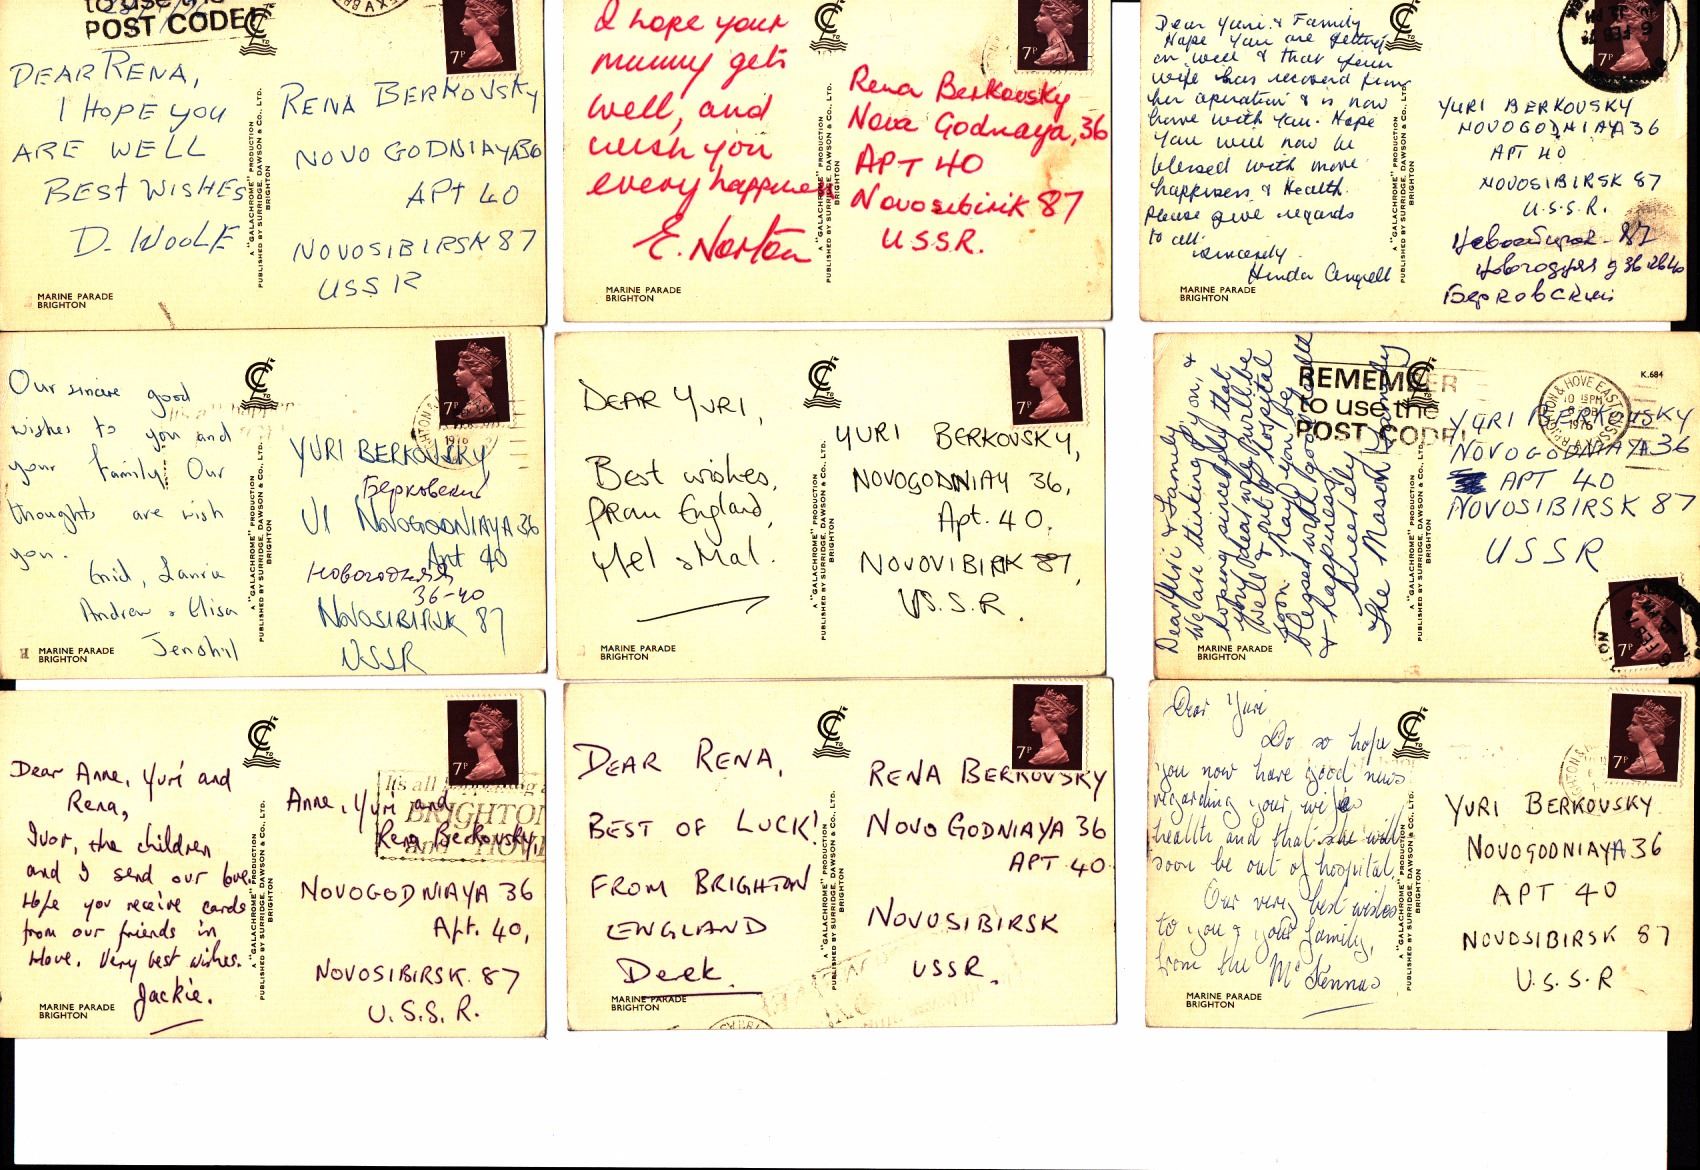 to use the
POST CODE
DEAR RENA,
I HOPE YOU
ARE WELL
BEST WISHES
D. WOOLF
7P
RENA BERKOVSKY
NOVO GODNIAYA 36
APT 40
NOVOSIBIRSK 87
USSR
A "GALACHROME" PRODUCTION
PUBLISHED BY SURRIDGE, DAWSON & CO., LTD.
BRIGHTON
MARINE PARADE
BRIGHTON
I hope your
mummy gets
well, and
wish you
every happiness
E. Norton
7P
Rena Berkovsky
Nova Godnaya, 36
APT 40
Novosibirik 87
USSR.
A "GALACHROME" PRODUCTION
PUBLISHED BY SURRIDGE, DAWSON & CO., LTD.
BRIGHTON
MARINE PARADE
BRIGHTON
Dear Yuri & Family
Hope you are getting
on well & that your
wife has recovered from
her operation & is now
home with you. Hope
you will now be
blessed with more
happiness & Health.
Please give regards
to all.
Sincerely
Hinda
YURI BERKOVSKY
NOVOGODNIAYA 36
APT 40
NOVOSIBIRSK 87
U.S.S.R.
Новосибирск - 87
Берковский
A "GALACHROME" PRODUCTION
PUBLISHED BY SURRIDGE, DAWSON & CO., LTD.
BRIGHTON
MARINE PARADE
BRIGHTON
Our sincere good
wishes to you and
your family. Our
thoughts are with
you.
Enid, Laurie
Andrew & Elisa
7P
1976
YURI BERKOVSKY
Берковский
Ul NOVOGODNIAYA 36
Apt 40
Новогодняя
36-40
NOVOSIBIRSK 87
USSR
A "GALACHROME" PRODUCTION
PUBLISHED BY SURRIDGE, DAWSON & CO., LTD.
BRIGHTON
MARINE PARADE
BRIGHTON
DEAR YURI,
Best wishes,
from England,
Mel & Mal.
7P
YURI BERKOVSKY,
NOVOGODNIAY 36,
Apt. 40.
NOVOVIBIRK 87,
U.S.S.R.
A "GALACHROME" PRODUCTION
PUBLISHED BY SURRIDGE, DAWSON & CO., LTD.
BRIGHTON
MARINE PARADE
BRIGHTON
Dear Yuri & Family
We are thinking of you, &
hoping sincerely that
your dear wife will be
well & out of hospital
soon. May you be
blessed with good health
& happiness.
Sincerely
The Mason Family
REMEMBER
to use the
POST CODE
BRIGHTON & HOVE EAST SUSSEX
1976
K.684
YURI BERKOVSKY
NOVOGODNIAYA 36
APT 40
NOVOSIBIRSK 87
USSR
7P
A "GALACHROME" PRODUCTION
PUBLISHED BY SURRIDGE, DAWSON & CO., LTD.
BRIGHTON
MARINE PARADE
BRIGHTON
Dear Anne, Yuri and
Rena,
Ivor, the children
and I send our love.
Hope you receive cards
from our friends in
Hove. Very best wishes.
Jackie.
7P
It's all happening
BRIGHTON
and HOVE
Anne, Yuri and
Rena Berkovsky,
NOVOGODNIAYA 36
Apt. 40,
NOVOSIBIRSK 87
U.S.S.R.
A "GALACHROME" PRODUCTION
PUBLISHED BY SURRIDGE, DAWSON & CO., LTD.
BRIGHTON
MARINE PARADE
BRIGHTON
DEAR RENA,
BEST OF LUCK!
FROM BRIGHTON
ENGLAND
Deek.
7P
RENA BERKOVSKY
NOVO GODNIAYA 36
APT 40
NOVOSIBIRSK
USSR.
A "GALACHROME" PRODUCTION
PUBLISHED BY SURRIDGE, DAWSON & CO., LTD.
BRIGHTON
MARINE PARADE
BRIGHTON
Dear Yuri,
Do so hope
you now have good news
regarding your wife's
health and that she will
soon be out of hospital.
Our very best wishes
to you & your family,
from the McKennas
7P
YURI BERKOVSKY
NOVOGODNIAYA 36
APT 40
NOVOSIBIRSK 87
U.S.S.R
A "GALACHROME" PRODUCTION
PUBLISHED BY SURRIDGE, DAWSON & CO., LTD.
BRIGHTON
MARINE PARADE
BRIGHTON